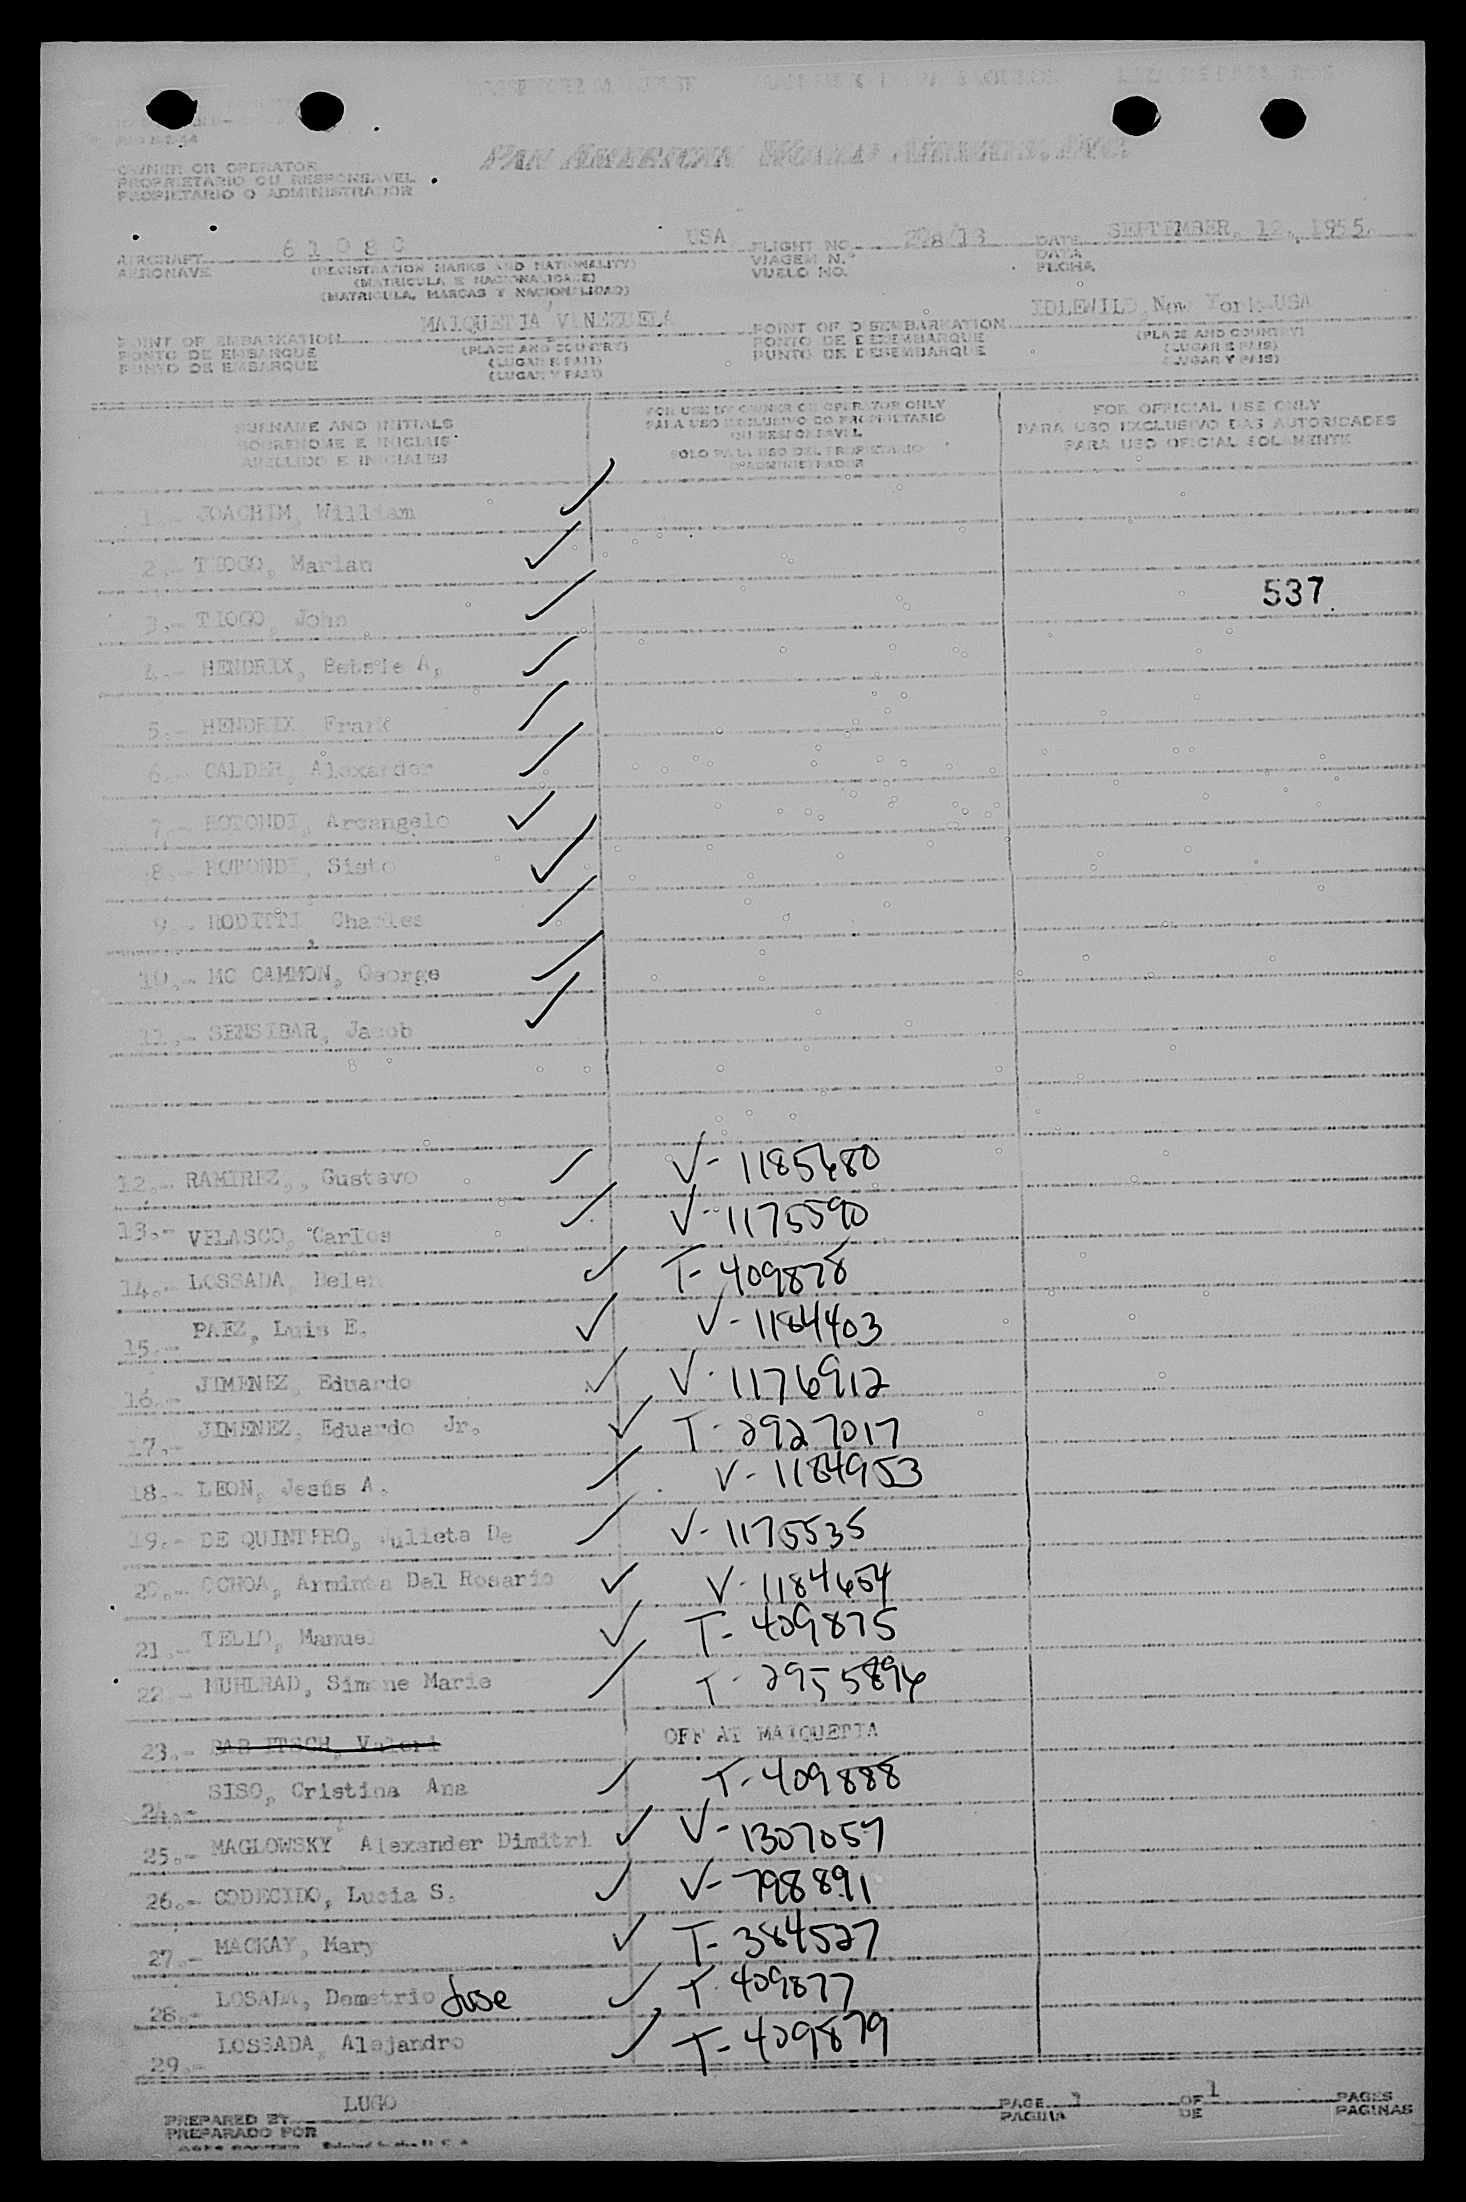 PASSENGER MANIFEST
PAN AMERICAN WORLD AIRWAYS, INC.
OWNER OR OPERATOR
PROPRIETARIO OU RESPONSAVEL
PROPIETARIO O ADMINISTRADOR
AIRCRAFT 61080 USA FLIGHT NO. DATE SEPTEMBER, 12., 1955.
AERONAVE (REGISTRATION MARKS AND NATIONALITY) VIAGEM N.° DATA
(MATRICULA E NACIONALIDADE) VUELO NO. FECHA
(MATRICULA, MARCAS Y NACIONALIDAD)
POINT OF EMBARKATION MAIQUETIA VENEZUELA POINT OF DISEMBARKATION IDLEWILD, New York USA
PONTO DE EMBARQUE (PLACE AND COUNTRY) PONTO DE DESEMBARQUE (PLACE AND COUNTRY)
PUNTO DE EMBARQUE (LUGAR E PAIS) PUNTO DE DESEMBARQUE (LUGAR E PAIS)
(LUGAR Y PAIS) (LUGAR Y PAIS)
SURNAME AND INITIALS FOR USE BY OWNER OR OPERATOR ONLY FOR OFFICIAL USE ONLY
SOBRENOME E INICIAIS PARA USO EXCLUSIVO DO PROPRIETARIO OU RESPONSAVEL PARA USO EXCLUSIVO DAS AUTORIDADES
APELLIDO E INICIALES SOLO PARA USO DEL PROPIETARIO O ADMINISTRADOR PARA USO OFICIAL SOLAMENTE
1.- JOACHIM, William
2.- TIOGO, Marian
537
3.- TIOGO, John
4.- HENDRIX, Betsie A,
5.- HENDRIX Frank
6.- CALDER, Alexander
7.- ROTONDI, Arcangelo
8.- ROTONDI, Sisto
9.- RODITTI, Charles
10.- MC CAMMON, George
11.- SENSIBAR, Jacob
12.- RAMIREZ,, Gustavo V-1185680
13.- VELASCO, Carlos V-1175590
14.- LOSSADA, Belen T-409878
15.- PAEZ, Luis E. V-1184403
16.- JIMENEZ, Eduardo V-1176912
17.- JIMENEZ, Eduardo Jr. T-2927017
18.- LEON, Jesús A. V-1184953
19.- DE QUINTERO, Julieta De V-1175535
20.- OCHOA, Arminta Del Rosario V-1184654
21.- TELLO, Manuel T-409875
22.- MUHLRAD, Simone Marie T-2955896
23.- OFF AT MAIQUETIA
24.- SISO, Cristina Ana T-409888
25.- MAGLOWSKY Alexander Dimitri V-1307057
26.- CODECIDO, Lucia S. V-798891
27.- MACKAY, Mary T-384527
28.- LOSADA, Demetrio Jose T-409877
29.- LOSSADA, Alejandro T-409879
PREPARED BY LUGO PAGE 1 OF 1 PAGES
PREPARADO POR PAGINA DE PAGINAS